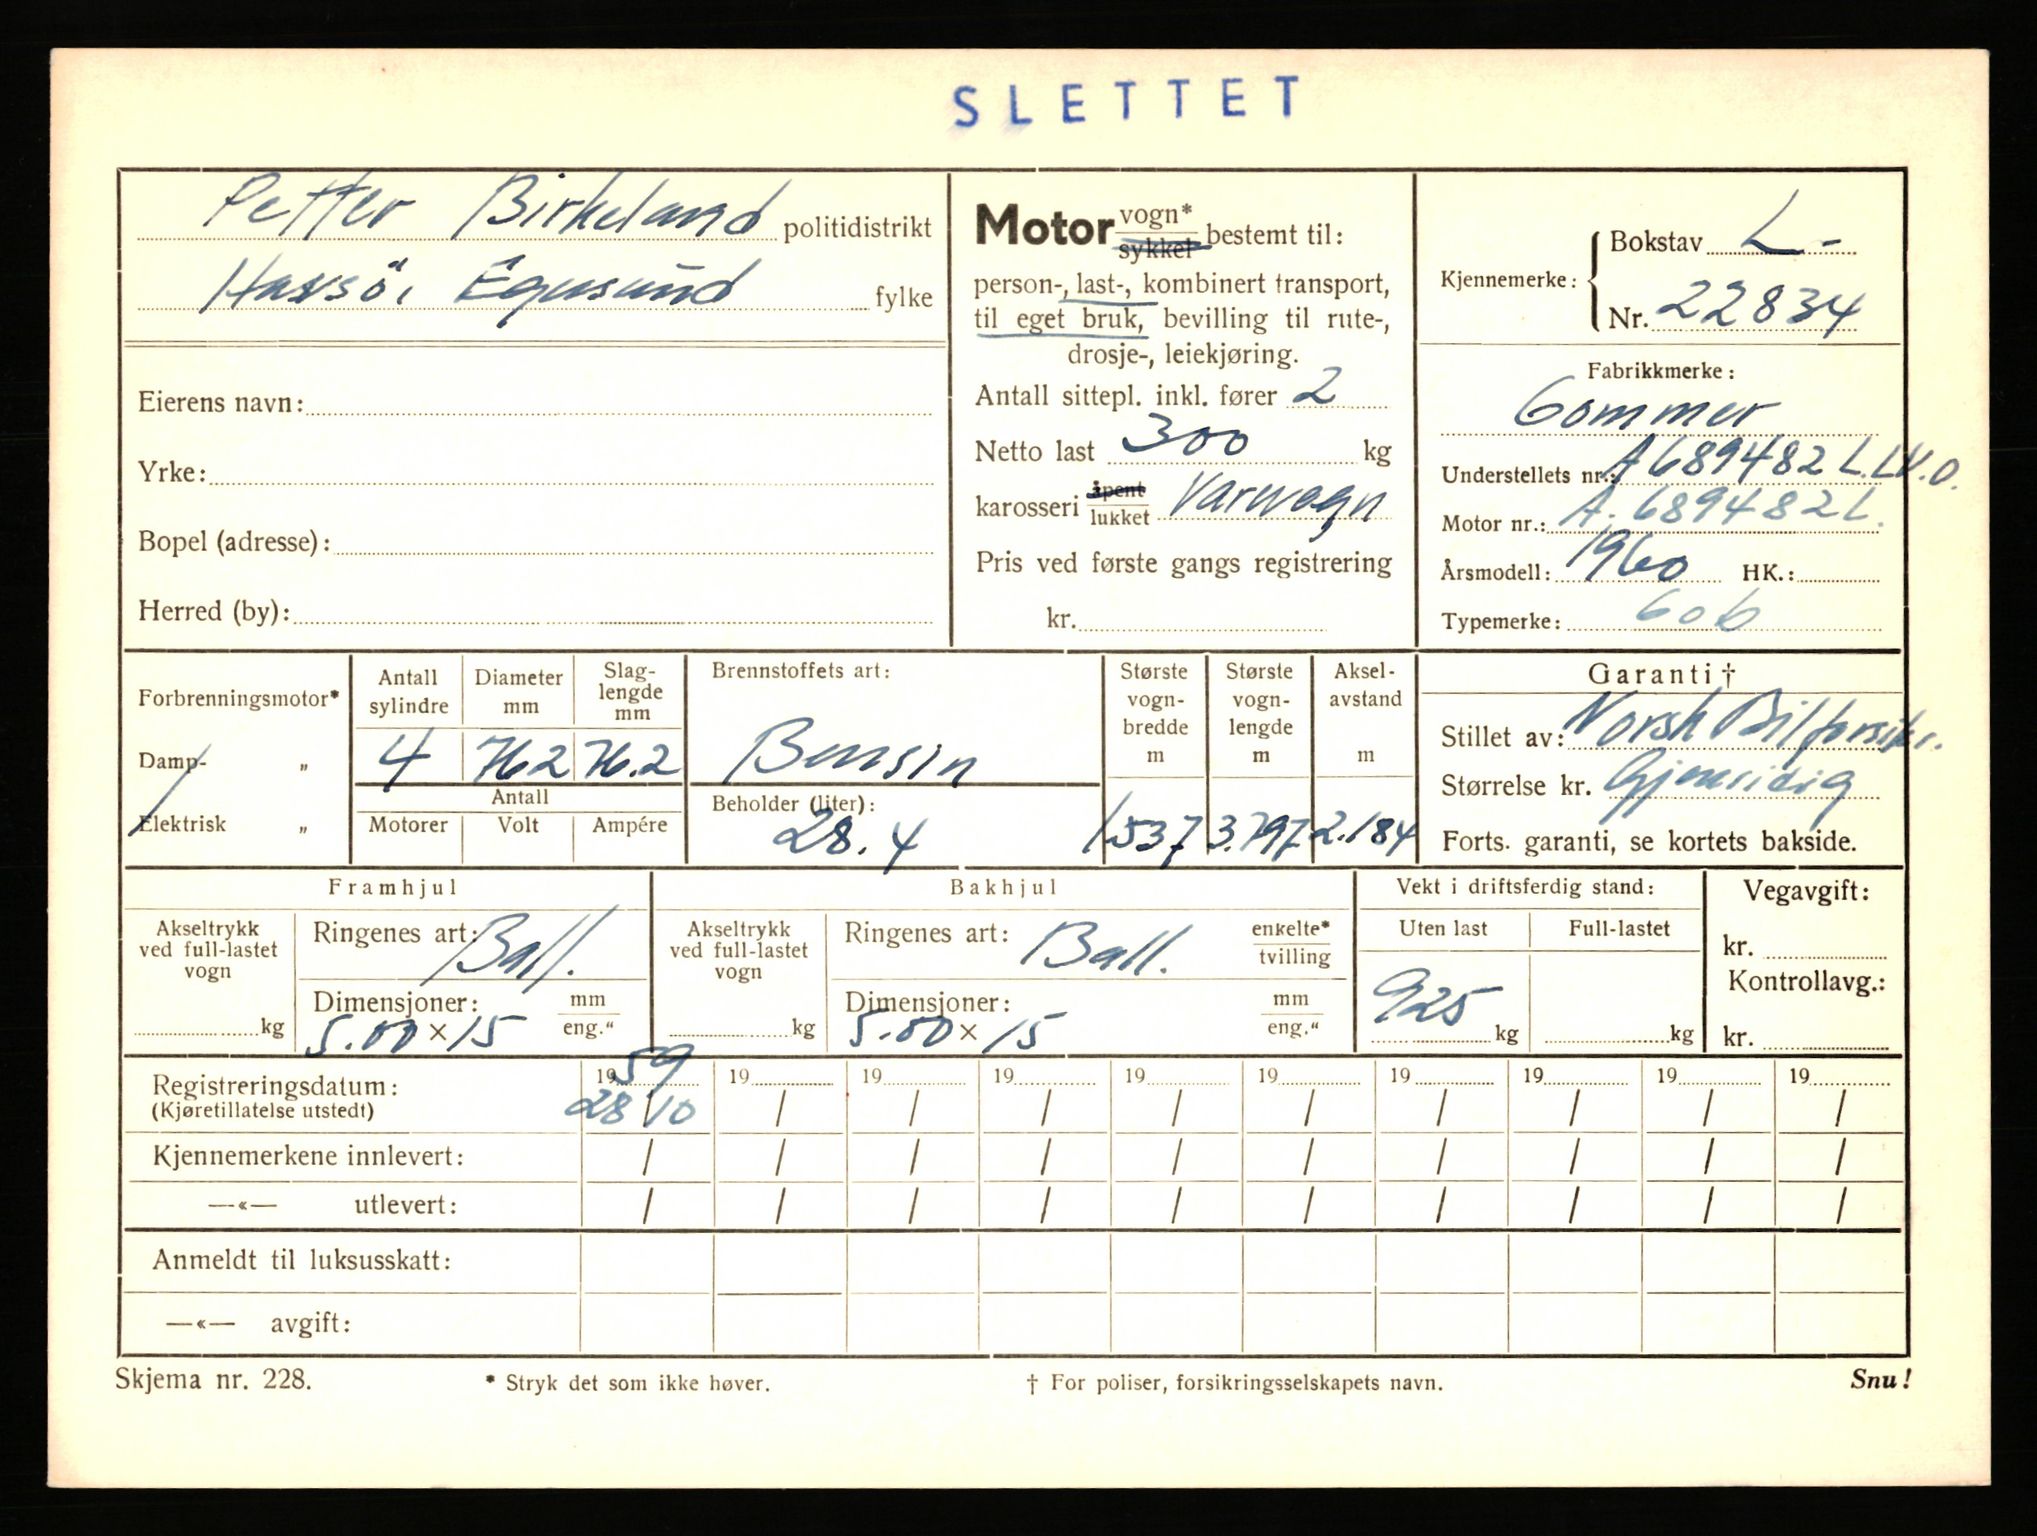 SLETTET
Petter Birkeland politidistrikt
Havsö, Egersund fylke
Eierens navn:
Yrke:
Bopel (adresse):
Herred (by):
Motor vogn* sykkel bestemt til:
person-, last-, kombinert transport,
til eget bruk, bevilling til rute-,
drosje-, leiekjøring.
Antall sittepl. inkl. fører 2
Netto last 300 kg
karosseri åpent lukket Varevogn
Pris ved første gangs registrering
kr.
Kjennemerke: Bokstav L-
Nr. 22834
Fabrikkmerke:
Commer
Understellets nr.: A689482L.LV.O.
Motor nr.: A.689482L.
Årsmodell: 1960 HK.:
Typemerke: Cob
Forbrenningsmotor*
Damp- „
Elektrisk „
Antall sylindre
Diameter mm
Slag-
lengde
mm
4 762 76.2
Antall
Motorer Volt Ampére
Brennstoffets art:
Bensin
Beholder (liter):
28.4
Største vogn-
bredde
m
Største vogn-
lengde
m
Aksel-
avstand
m
1537 3.797 2.184
Garanti †
Stillet av: Norsk Bilforsikr.
Størrelse kr. Gjensidig
Forts. garanti, se kortets bakside.
Framhjul
Akseltrykk
ved full-lastet
vogn
kg
Ringenes art: Ball.
Dimensjoner: mm
5.00 × 15 eng."
Bakhjul
Akseltrykk
ved full-lastet
vogn
kg
Ringenes art: Ball. enkelte*
tvilling
Dimensjoner: mm
5.00 × 15 eng."
Vekt i driftsferdig stand:
Uten last Full-lastet
925 kg kg
Vegavgift:
kr.
Kontrollavg.:
kr.
Registreringsdatum: 1959 19 19 19 19 19 19 19 19 19
(Kjøretillatelse utstedt) 28/10 / / / / / / / / /
Kjennemerkene innlevert: / / / / / / / / / /
—«— utlevert: / / / / / / / / / /
Anmeldt til luksusskatt:
—«— avgift:
Skjema nr. 228. * Stryk det som ikke høver. † For poliser, forsikringsselskapets navn. Snu!